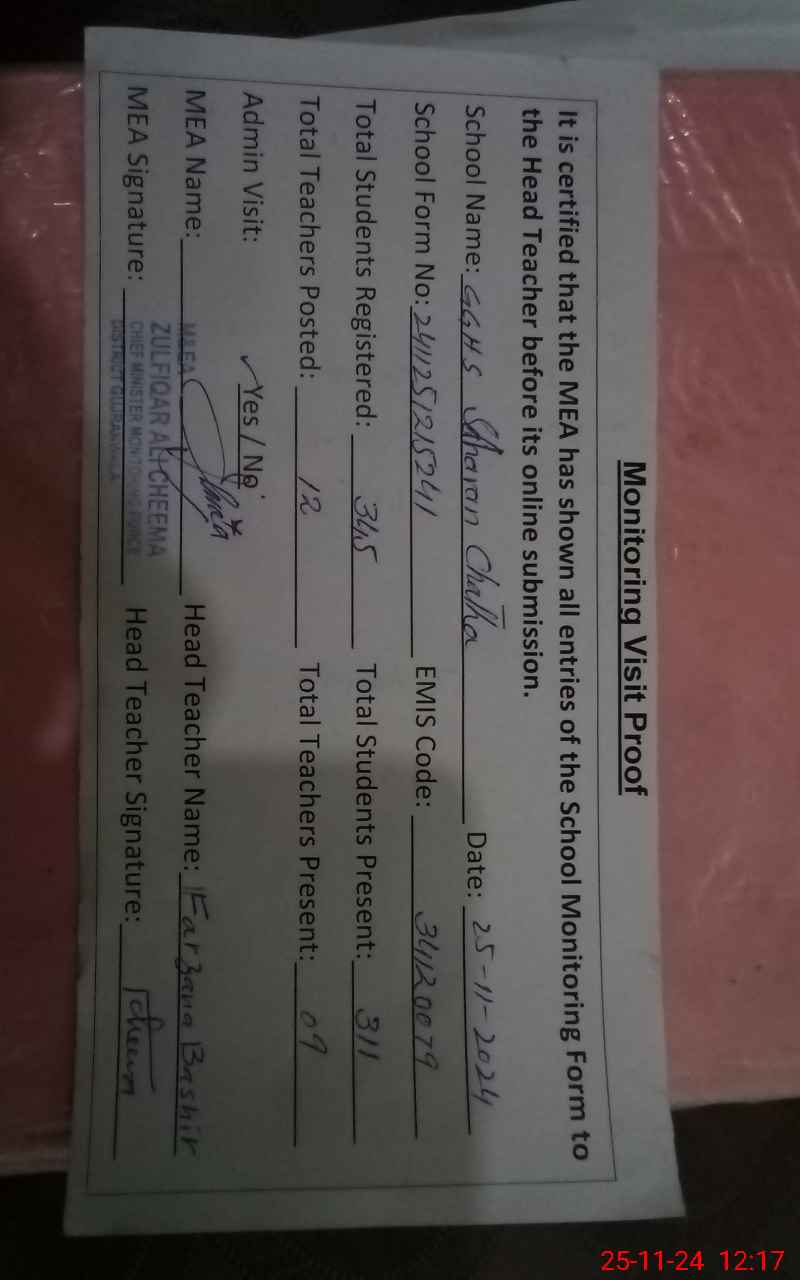 Monitoring Visit Proof
It is certified that the MEA has shown all entries of the School Monitoring Form to
the Head Teacher before its online submission.
School Name: GGHS Chatha Date: 25-11-2024
School Form No: 2411251215241 EMIS Code: 34120079
Total Students Registered: 345 Total Students Present: 311
Total Teachers Posted: 12 Total Teachers Present: 09
Admin Visit: ✓Yes / No
MEA Name: Head Teacher Name: Farzana Bashir
MEA Signature: Head Teacher Signature: Fcheema
M&EA
ZULFIQAR ALI CHEEMA
CHIEF MINISTER MONITORING FORCE
DISTRICT GUJRANWALA
25-11-24 12:17